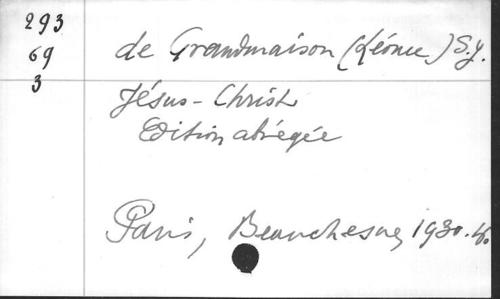 293
69
3
de Grandmaison (Léonce) S.J.
Jésus-Christ
Edition abrégée
Paris, Beauchesne, 1930.